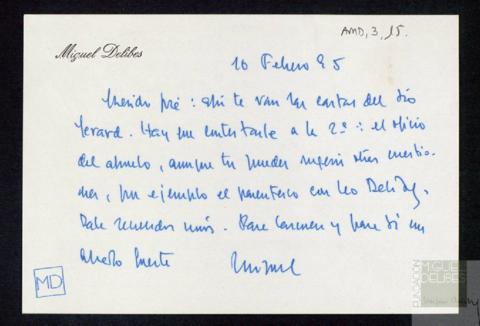 AMD, 3, 15.
Miguel Delibes
10 Febrero 85
Querido Pepé: ahí te van las cartas del tío
Gerard. Hay que contestarle a la 2ª: el oficio
del abuelo, aunque tú puedes sugerir otras cuestio-
nes, por ejemplo el parentesco con Leo Delibes.
Dale recuerdos míos. Para Carmen y para ti un
abrazo fuerte
Miguel
MD
FUNDACIÓN
MIGUEL
DELIBES